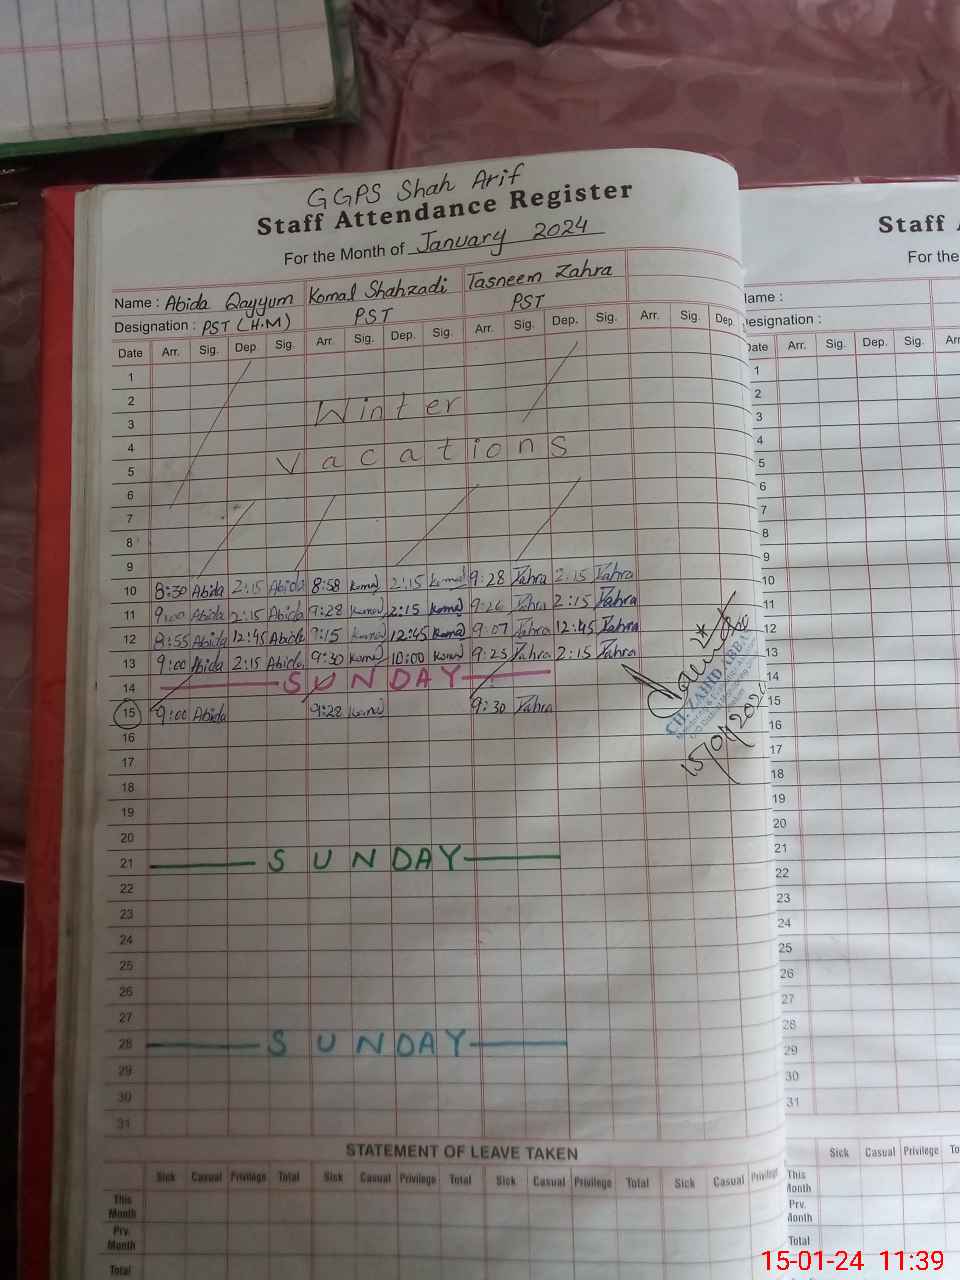 GGPS Shah Arif
Staff Attendance Register
For the Month of January 2024
Name : Abida Qayyum Komal Shahzadi Tasneem Zahra
Designation : PST (H.M) PST PST
Date Arr. Sig. Dep. Sig. Arr. Sig. Dep. Sig. Arr. Sig. Dep. Sig. Arr. Sig. Dep.
1
2
3 Winter
4
5 Vacations
6
7
8
9
10 8:30 Abida 2:15 Abida 8:58 Komal 2:15 Komal 9:28 Zahra 2:15 Zahra
11 9:00 Abida 2:15 Abida 9:28 Komal 2:15 Komal 9:26 Zahra 2:15 Zahra
12 8:55 Abida 12:45 Abida 9:15 Komal 12:45 Komal 9:07 Zahra 12:45 Zahra
13 9:00 Abida 2:15 Abida 9:30 Komal 10:00 Komal 9:25 Zahra 2:15 Zahra
14 SUNDAY
15 9:00 Abida 9:28 Komal 9:30 Zahra
CH. ZAHID ABBA
15/01/2024
16
17
18
19
20
21 SUNDAY
22
23
24
25
26
27
28 SUNDAY
29
30
31
STATEMENT OF LEAVE TAKEN
Sick Casual Privilege Total Sick Casual Privilege Total Sick Casual Privilege Total Sick Casual Privilege
This Month
Prv. Month
Total
Staff
For the
Name :
Designation :
Date Arr. Sig. Dep. Sig. Arr
1
2
3
4
5
6
7
8
9
10
11
12
13
14
15
16
17
18
19
20
21
22
23
24
25
26
27
28
29
30
31
Sick Casual Privilege To
This Month
Prv. Month
Total
15-01-24 11:39